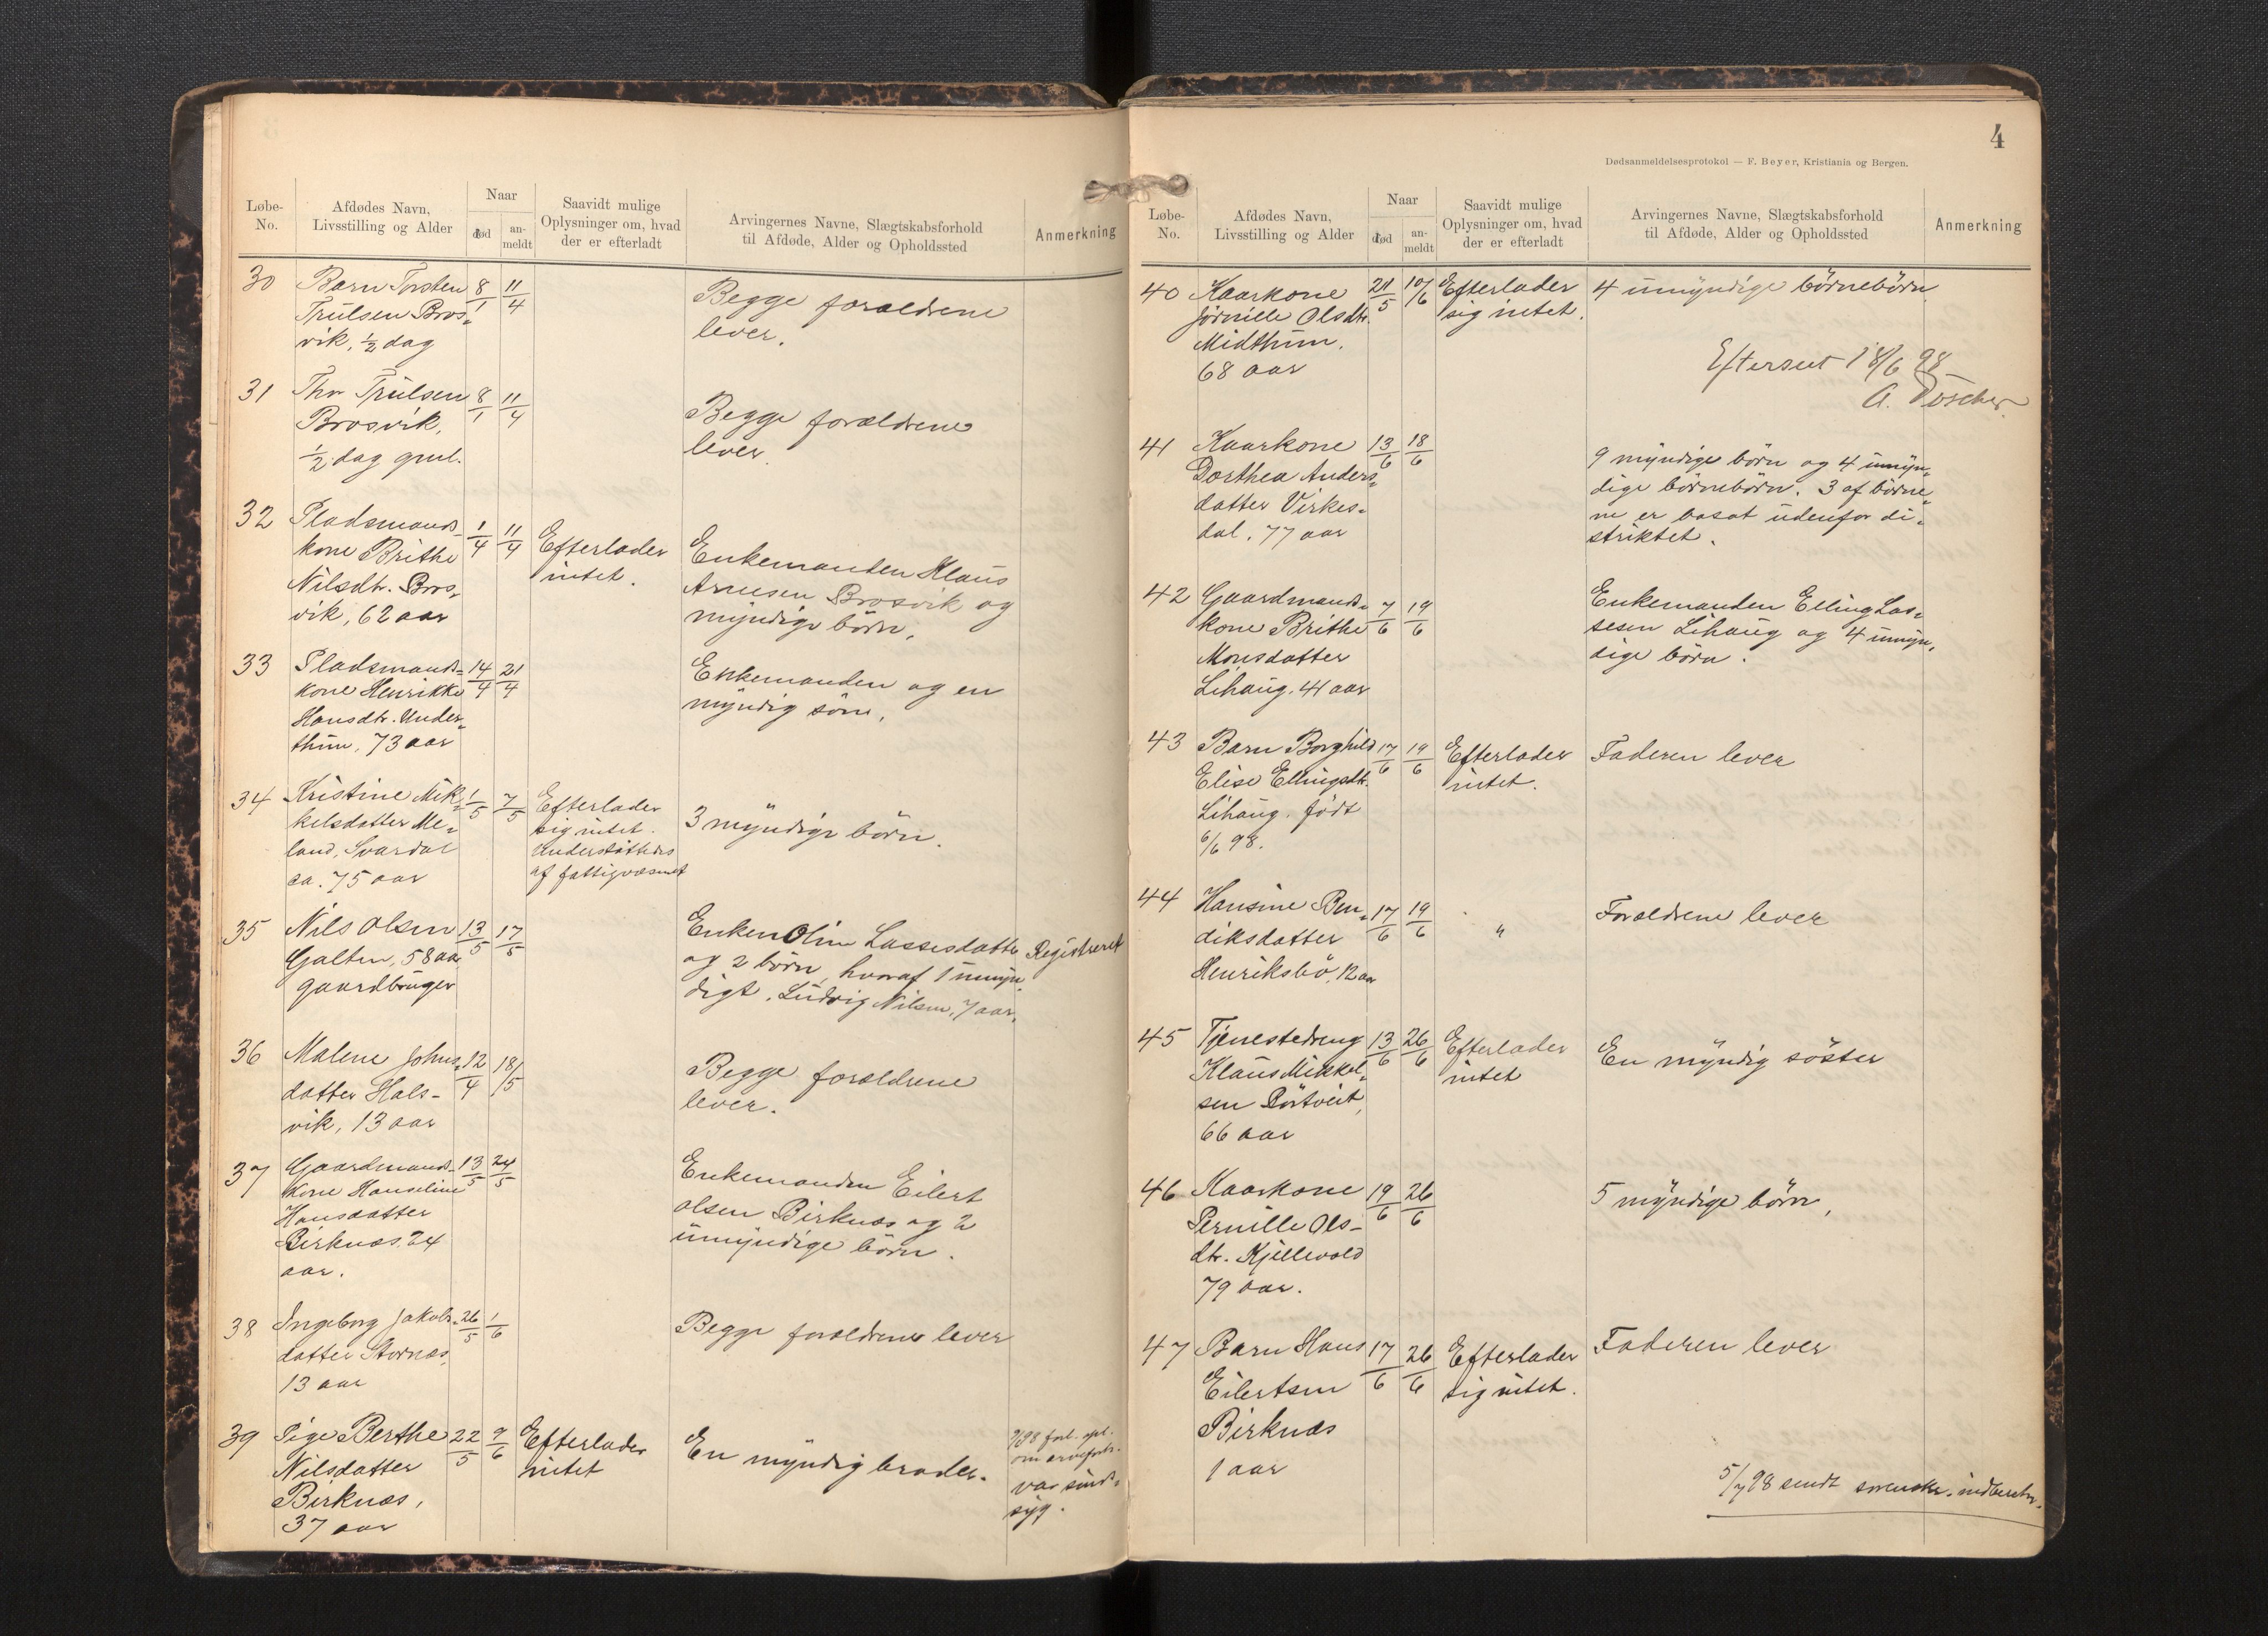 Løbe-
No.
Afdødes Navn,
Livsstilling og Alder
Naar
død
an-
meldt
Saavidt mulige
Oplysninger om, hvad
der er efterladt
Arvingernes Navne, Slægtskabsforhold
til Afdøde, Alder og Opholdssted
Anmerkning
30 Barn Torsten 8/1 11/4 Begge forældrene
Trulsen Bros- lever.
vik, ½ dag
31 Thor Trulsen 8/1 11/4 Begge forældrene
Brosvik, lever.
½ dag gml.
32 Pladsmands- 1/4 11/4 Efterlader Enkemanden Klaus
kone Brithe intet. Arnesen Brosvik og
Nilsdtr. Bros- myndige børn.
vik, 62 aar
33 Pladsmands- 14/4 21/4 Enkemanden og en
kone Henrikke myndig søn.
Hansdtr. Under-
thun, 73 aar
34 Kristine Mik- 1/5 7/5 Efterlader 3 myndige børn.
kelsdatter Me- sig intet.
land, Svardal Understøttedes
ca. 75 aar af fattigvæsnet
35 Nils Olsen 13/5 17/5 Enken Oline Lassesdatter Registreret
Galten, 58 aar og 2 børn, hvoraf 1 umyn-
gaardbruger digt. Ludvig Nilsen, 7 aar.
36 Malene Johns- 12/4 18/5 Begge forældrene
datter Hals- lever.
vik, 13 aar
37 Gaardmands- 13/5 24/5 Enkemanden Eilert
kone Hanseline Olsen Birknæs og 2
Hansdatter umyndige børn.
Birknæs, 24
aar.
38 Ingeborg Jakobs- 26/5 1/6 Begge forældrene lever
datter Stornæs,
13 aar
39 Pige Berthe 22/5 9/6 Efterlader En myndig broder.
Nilsdatter intet
Birknæs,
37 aar
var sinds-
syg.
4
Dødsanmeldelsesprotokol — F. Beyer, Kristiania og Bergen.
Løbe-
No.
Afdødes Navn,
Livsstilling og Alder
Naar
død
an-
meldt
Saavidt mulige
Oplysninger om, hvad
der er efterladt
Arvingernes Navne, Slægtskabsforhold
til Afdøde, Alder og Opholdssted
Anmerkning
40 Kaarkone 21/5 10/6 Efterlader 4 umyndige børnebørn
Jørnille Olsdtr. sig intet.
Midthun.
68 aar
Efterseet 18/6 98
41 Kaarkone 13/6 18/6 9 myndige børn og 4 umyn-
Dorthea Anders- dige børnebørn. 3 af børne-
datter Virkes- ne er bosat udenfor di-
dal. 77 aar striktet.
42 Gaardmands- 7/6 19/6 Enkemanden Elling Las-
kone Brithe sesen Lihaug og 4 umyn-
Monsdatter dige børn.
Lihaug. 41 aar
43 Barn Borghild 17/6 19/6 Efterlader Faderen lever
Elise Ellingsdtr. intet.
Lihaug. født
6/6 98.
44 Hansine Ben- 17/6 19/6 " Forældrene lever
diksdatter
Henriksbø, 12 aar
45 Tjenestedreng 13/6 26/6 Efterlader En myndig søster
Klaus Mikkel- intet
sen Rørtveit,
66 aar
46 Kaarkone 19/6 26/6 5 myndige børn.
Pernille Ols-
dtr. Kjellevold
79 aar.
47 Barn Hans 17/6 26/6 Efterlader Faderen lever
Eilertsen sig intet.
Birknæs
1 aar
5/7 98 sendt svenske. indberetn.